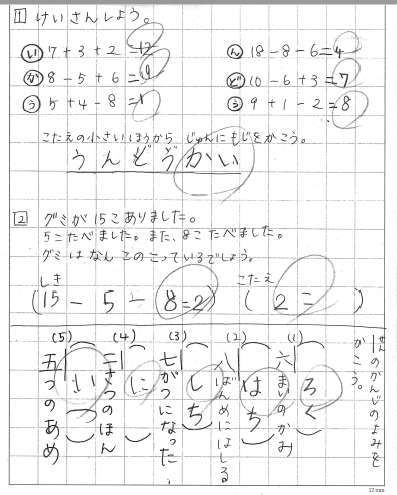 1 けいさんしよう。
い 7+3+2=12
が 8-5+6=9
う 5+4-8=1
ん 18-8-6=4
ど 10-6+3=7
う 9+1-2=8
こたえの小さいほうから じゅんにもじをかこう。
うんどうかい
2 グミが15こありました。
5こたべました。また、8こたべました。
グミはなんこのこっているでしょう。
しき
(15-5-8=2)
こたえ
(2こ)
せんのかんじのよみを
かこう。
(1) 六まいのかみ
ろく
(2) 八ばんめにはしる
はち
(3) 七がつになった
しち
(4) 二さつのほん
に
(5) 五つのあめ
いつ
12mm